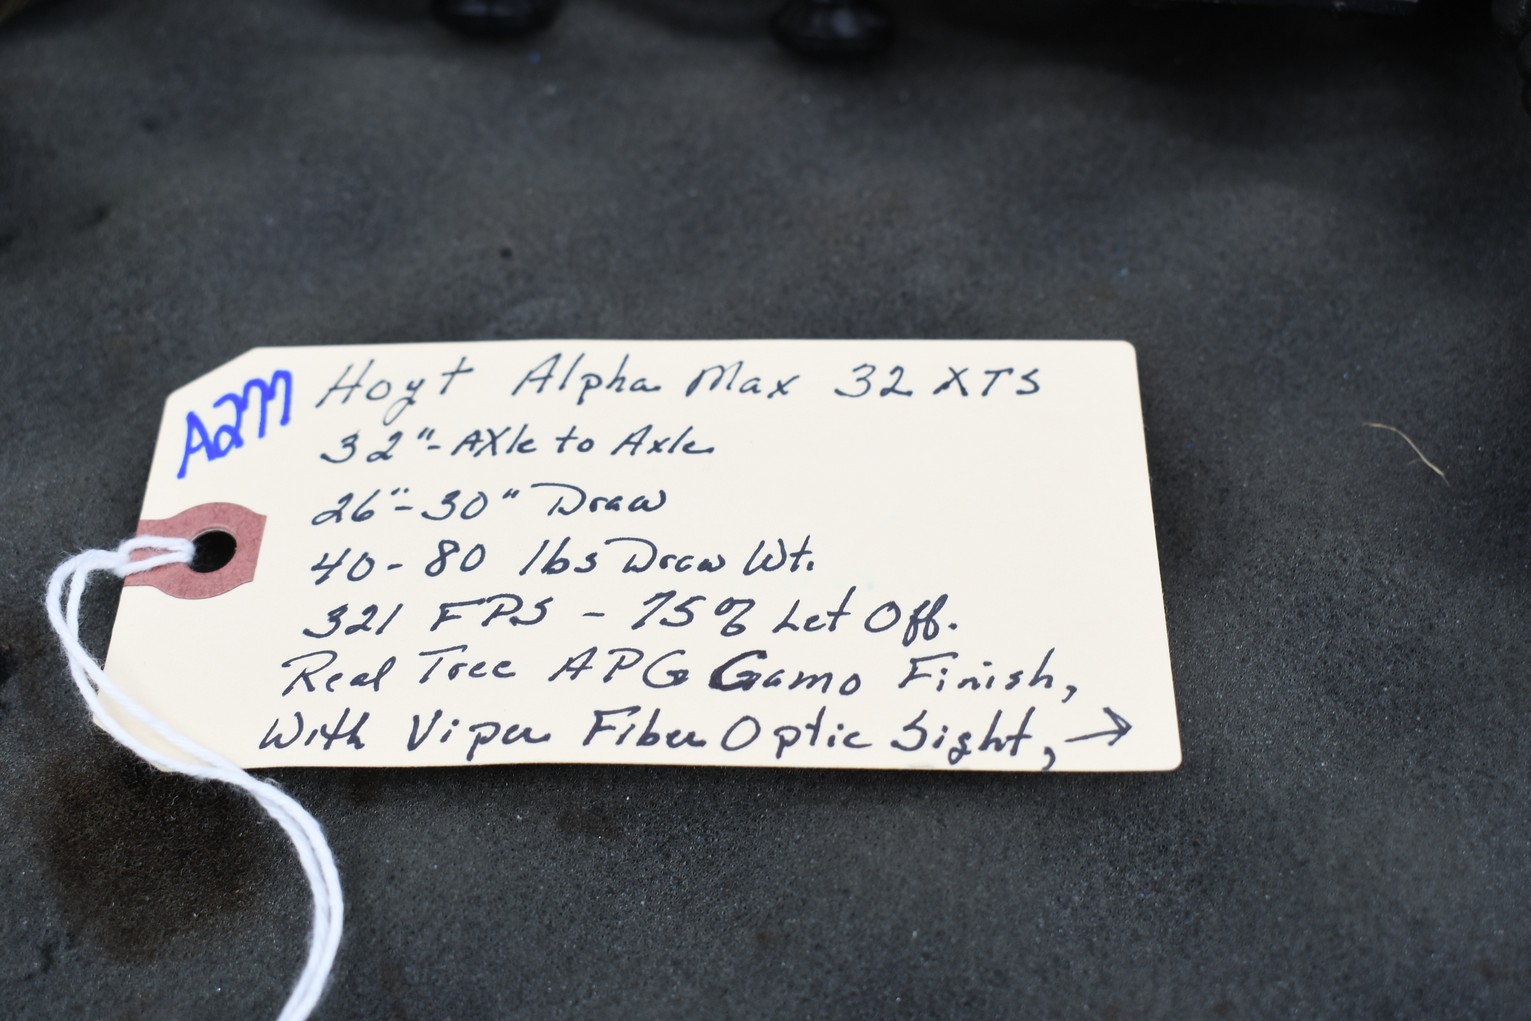 A277
Hoyt Alpha Max 32 XTS
32"-AXle to Axle
26"-30" Draw
40-80 lbs Draw Wt.
321 FPS - 75% Let Off.
Real Tree APG Gamo Finish,
With Viper Fiber Optic Sight, →